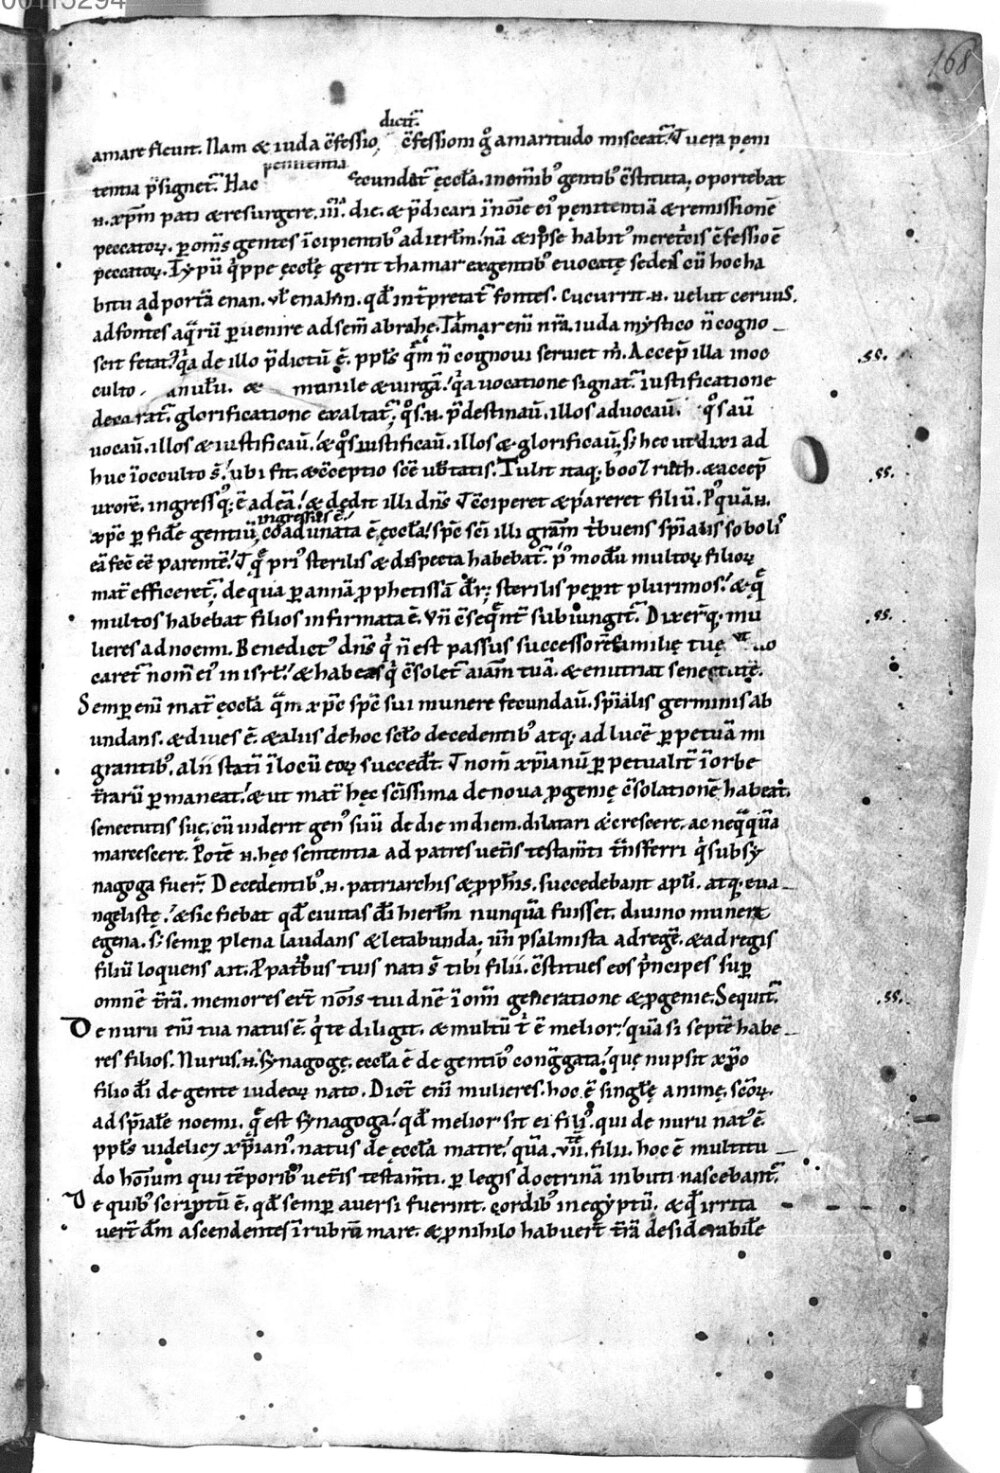 00115294
168
dicit᷑.
amare fleuit. Nam & iuda c̄fessio, c̄fessioni g̊ amaritudo misceat᷑. Ut uera peni
penitentia
tentia p̄signet᷑. Hac fecundat᷑ ęccl̄a. in om̄ib; gentib; c̄stituta, oportebat
.n. xp̄m pati & resurgere .iii.ᵃ die. & p̄dicari ī nōīe ei᷒ pęnitentiā & remissionē
peccatoꝝ. ꝑ om̄s gentes īcipientib; ad ierl̄m. nā & ip̄se habit᷒ meretͥcis c̄fessio ē
peccatoꝝ. Typū qͥppe ęccl̄ę gerit thamar ex gentib; euocatę sedens cū hoc ha
bitu ad portā enan. ul̄ enaim. qd̄ int̄pretat᷑ fontes. Cucurrit .n. uelut ceruus.
ad fontes aq̄rū ꝑuenire ad sem̄ abrahę. Tamar em̄ nr̄a. iuda mystico n̄ cogno_
scit fetat᷑. qͣa de illo p̄dictū ē. ppl̄s qͤm n̄ cognoui seruiet m̄. Accep̄ illa in oc
.ss.
culto anulū. & monile & uirgā. qͣa uocatione signat᷑ iustificatione
decorat᷑. glorificatione exaltat᷑, qͦs .n. p̄destinau̅. illos aduocau̅. qͦs au̅
uocau̅. illos & iustificau̅. & qͦs iustificau̅. illos & glorificau̅, s; hec ut dixi ad
huc ī occulto s̄. ubi fit. & c̄ceptio sc̄ę ub̄tatis. Tulit itaq; booz ruth. & accep̄
.ss.
uxorē. ingressusq; ē ad eā. & dedit illi dn̄s ut c̄ciperet & pareret filiū. Pq̊uā .n.
ingressus ē.
xp̄c ꝑ fidē gentiū, coadunata ē ęccl̄a. sp̄c sc̄i illi grām t̄buens sp̄ialis soboli᷒
eā fec̄ ēē parentē. Ut quę pri᷒ sterilis & despecta habebat᷑. p᷒modū multoꝝ filioꝝ
mat̄ efficeret᷑, de qua ꝑ annā prophetissā dr̄; sterilis peperit plurimos. & quę
multos habebat filios infirmata ē. Un̄ c̄seqͤnt̄ subiungit᷑. Dixer̄q; mu
.ss.
lieres ad noemi. Benedict᷒ dn̄s qͥ n̄ est passus successorē familię tuę. ut
caret᷑ nom̄ ei᷒ in isrl̄. & habeas qͥ c̄solet᷑ aīam tuā. & enutriat senectutē.
Semꝑ eni̅ mat᷑ ęccl̄a quam xp̄c sp̄c sui munere fecundau̅. sp̄ialis germinis ab
undans. & diues ē. & aliis de hoc scl̄o decedentib; atq; ad lucē ꝑpetuā mi
grantib;. alii statī ī locū eoꝝ succedt̄. Ut nom̄ xp̄ianū ꝑpetualit᷑ ī orbe
t̄rarū ꝑmaneat. & ut mat̄ hęc sc̄issima de noua ꝓgenię c̄solationē habeat.
senectutis suę. cū uiderit gen᷒ suū de die in diem. dilatari & crescere. ac neqͣqͣuā
marcescere. Potē .n. hęc sententia ad patres uet̄is testam̄ti t̄nsferri qͥ sub sy
nagoga fuer̄. Decedentib; .n. patriarchis & ꝓph̄is. succedebant apl̄i. atq; eua_
ngelistę. & sic fiebat qd̄ ciuitas dī hierl̄m nunquā fuisset. diuino munere
egena. s; semꝑ plena laudans & letabunda. un̄ psalmista ad regē. & ad regis
filiū loquens ait. Pro patͥbus tuis nati s̄ tibi filii. c̄stitues eos pͥncipes suꝑ
omnē t̄rā. memores ert̄ nōīs tui dnē ī om̄i generatione & ꝓgenie. Sequit᷑.
.ss.
De nuru em̄ tua natus ē. qͥ te diligit. & multū t̄ ē melior. quā si septē habe_
res filios. Nurus .n. synagogę. eccl̄a ē de gentib; cong̊gata. quę nupsit xp̄o
filio dī de gente iudeoꝝ nato. Dic̄t eni̅ mulieres. hoc ē singl̄ę animę. sc̄oꝝ.
ad sp̄ialē noemi. quę est synagoga. qd̄ melior sit ei fili᷒. qui de nuru nat᷒ ē.
ppl̄s uidelicꝫ xp̄ian᷒. natus de eccl̄a matre. quā .vii. filii. hoc ē multitu_
do hom̄ium qui tēporib; uet̄is testam̄ti. ꝑ legis doctrinā inbuti nascebant᷑.
De quib; scriptū ē. qd̄ semꝑ auersi fuerint. cordib; in egyptū. & qd̄ irrita
uert̄ dm̄ ascendentes ī rubrū mare. & ꝓ nihilo habuert̄ t̄rā desiderabilē